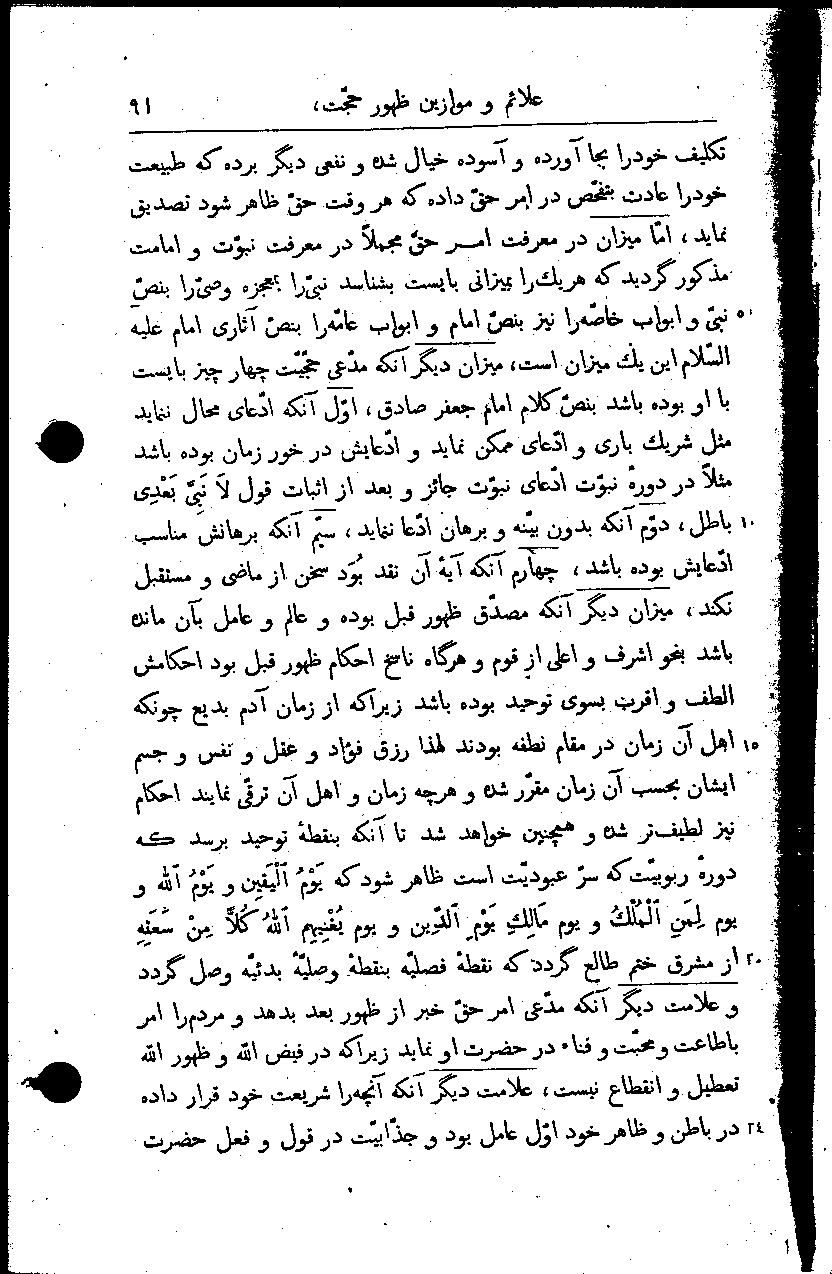 علائم و موازین ظهور حجّت، ۹۱
تکلیف خودرا بجا آورده و آسوده خیال شده و نفعی دیگر برده که طبیعت
خودرا عادت بتفحّص در امر حقّ داده که هر وقت حقّ ظاهر شود تصدیق
نماید، امّا میزان در معرفت امــر حقّ مجملاً در معرفت نبوّت و امامت
مذکور گردید که هریك‌را بمیزانی بایست بشناسد نبیّ‌را بمعجزه وصیّ‌را بنصّ
۵ نبیّ و ابواب خاصّه‌را نیز بنصّ امام و ابواب عامّه‌را بنصّ آثاری امام علیه
السّلام این یك میزان است، میزان دیگر آنکه مدّعی حجّیّت چهار چیز بایست
با او بوده باشد بنصّ کلام امام جعفر صادق، اوّل آنکه ادّعای محال ننماید
مثل شریك باری و ادّعای ممکن نماید و ادّعایش در خور زمان بوده باشد
مثلاً در دورهٔ نبوّت ادّعای نبوّت جائز و بعد از اثبات قول لَا نَبِیَّ بَعْدِی
۱۰ باطل، دوّم آنکه بدون بیّنه و برهان ادّعا ننماید، سیّم آنکه برهانش مناسب
ادّعایش بوده باشد، چهارم آنکه آیهٔ آن نقد بُوَد سخن از ماضی و مستقبل
نکند، میزان دیگر آنکه مصدّق ظهور قبل بوده و عالم و عامل بآن مانده
باشد بنحو اشرف و اعلی از قوم و هرگاه ناسخ احکام ظهور قبل بود احکامش
الطف و اقرب بسوی توحید بوده باشد زیراکه از زمان آدم بدیع چونکه
۱۵ اهل آن زمان در مقام نطفه بودند لهذا رزق فؤاد و عقل و نفس و جسم
ایشان بحسب آن زمان مقرّر شده و هرچه زمان و اهل آن ترقّی نمایند احکام
نیز لطیف‌تر شده و همچنین خواهد شد تا آنکه بنقطهٔ توحید برسد کــه
دورهٔ ربوبیّت که سرّ عبودیّت است ظاهر شود که یَوْمُ ٱلْیَقِین و یَوْمُ ٱلله و
یوم لِمَنِ ٱلْمُلْكُ و یوم مَالِكِ یَوْمِ ٱلدِّین و یوم یُغْنِیهِم ٱللهُ کُلّاً مِنْ سَعَتِهِ
۲۰ از مشرق ختم طالع گردد که نقطهٔ فصلیّه بنقطهٔ وصلیّهٔ بدئیّه وصل گردد
و علامت دیگر آنکه مدّعی امر حقّ خبر از ظهور بعد بدهد و مردم‌را امر
باطاعت و محبّت و فناء در حضرت او نماید زیراکه در فیض الله و ظهور الله
تعطیل و انقطاع نیست، علامت دیگر آنکه آنچه‌را شریعت خود قرار داده
۲۴ در باطن و ظاهر خود اوّل عامل بود و جذّابیّت در قول و فعل حضرت
۱